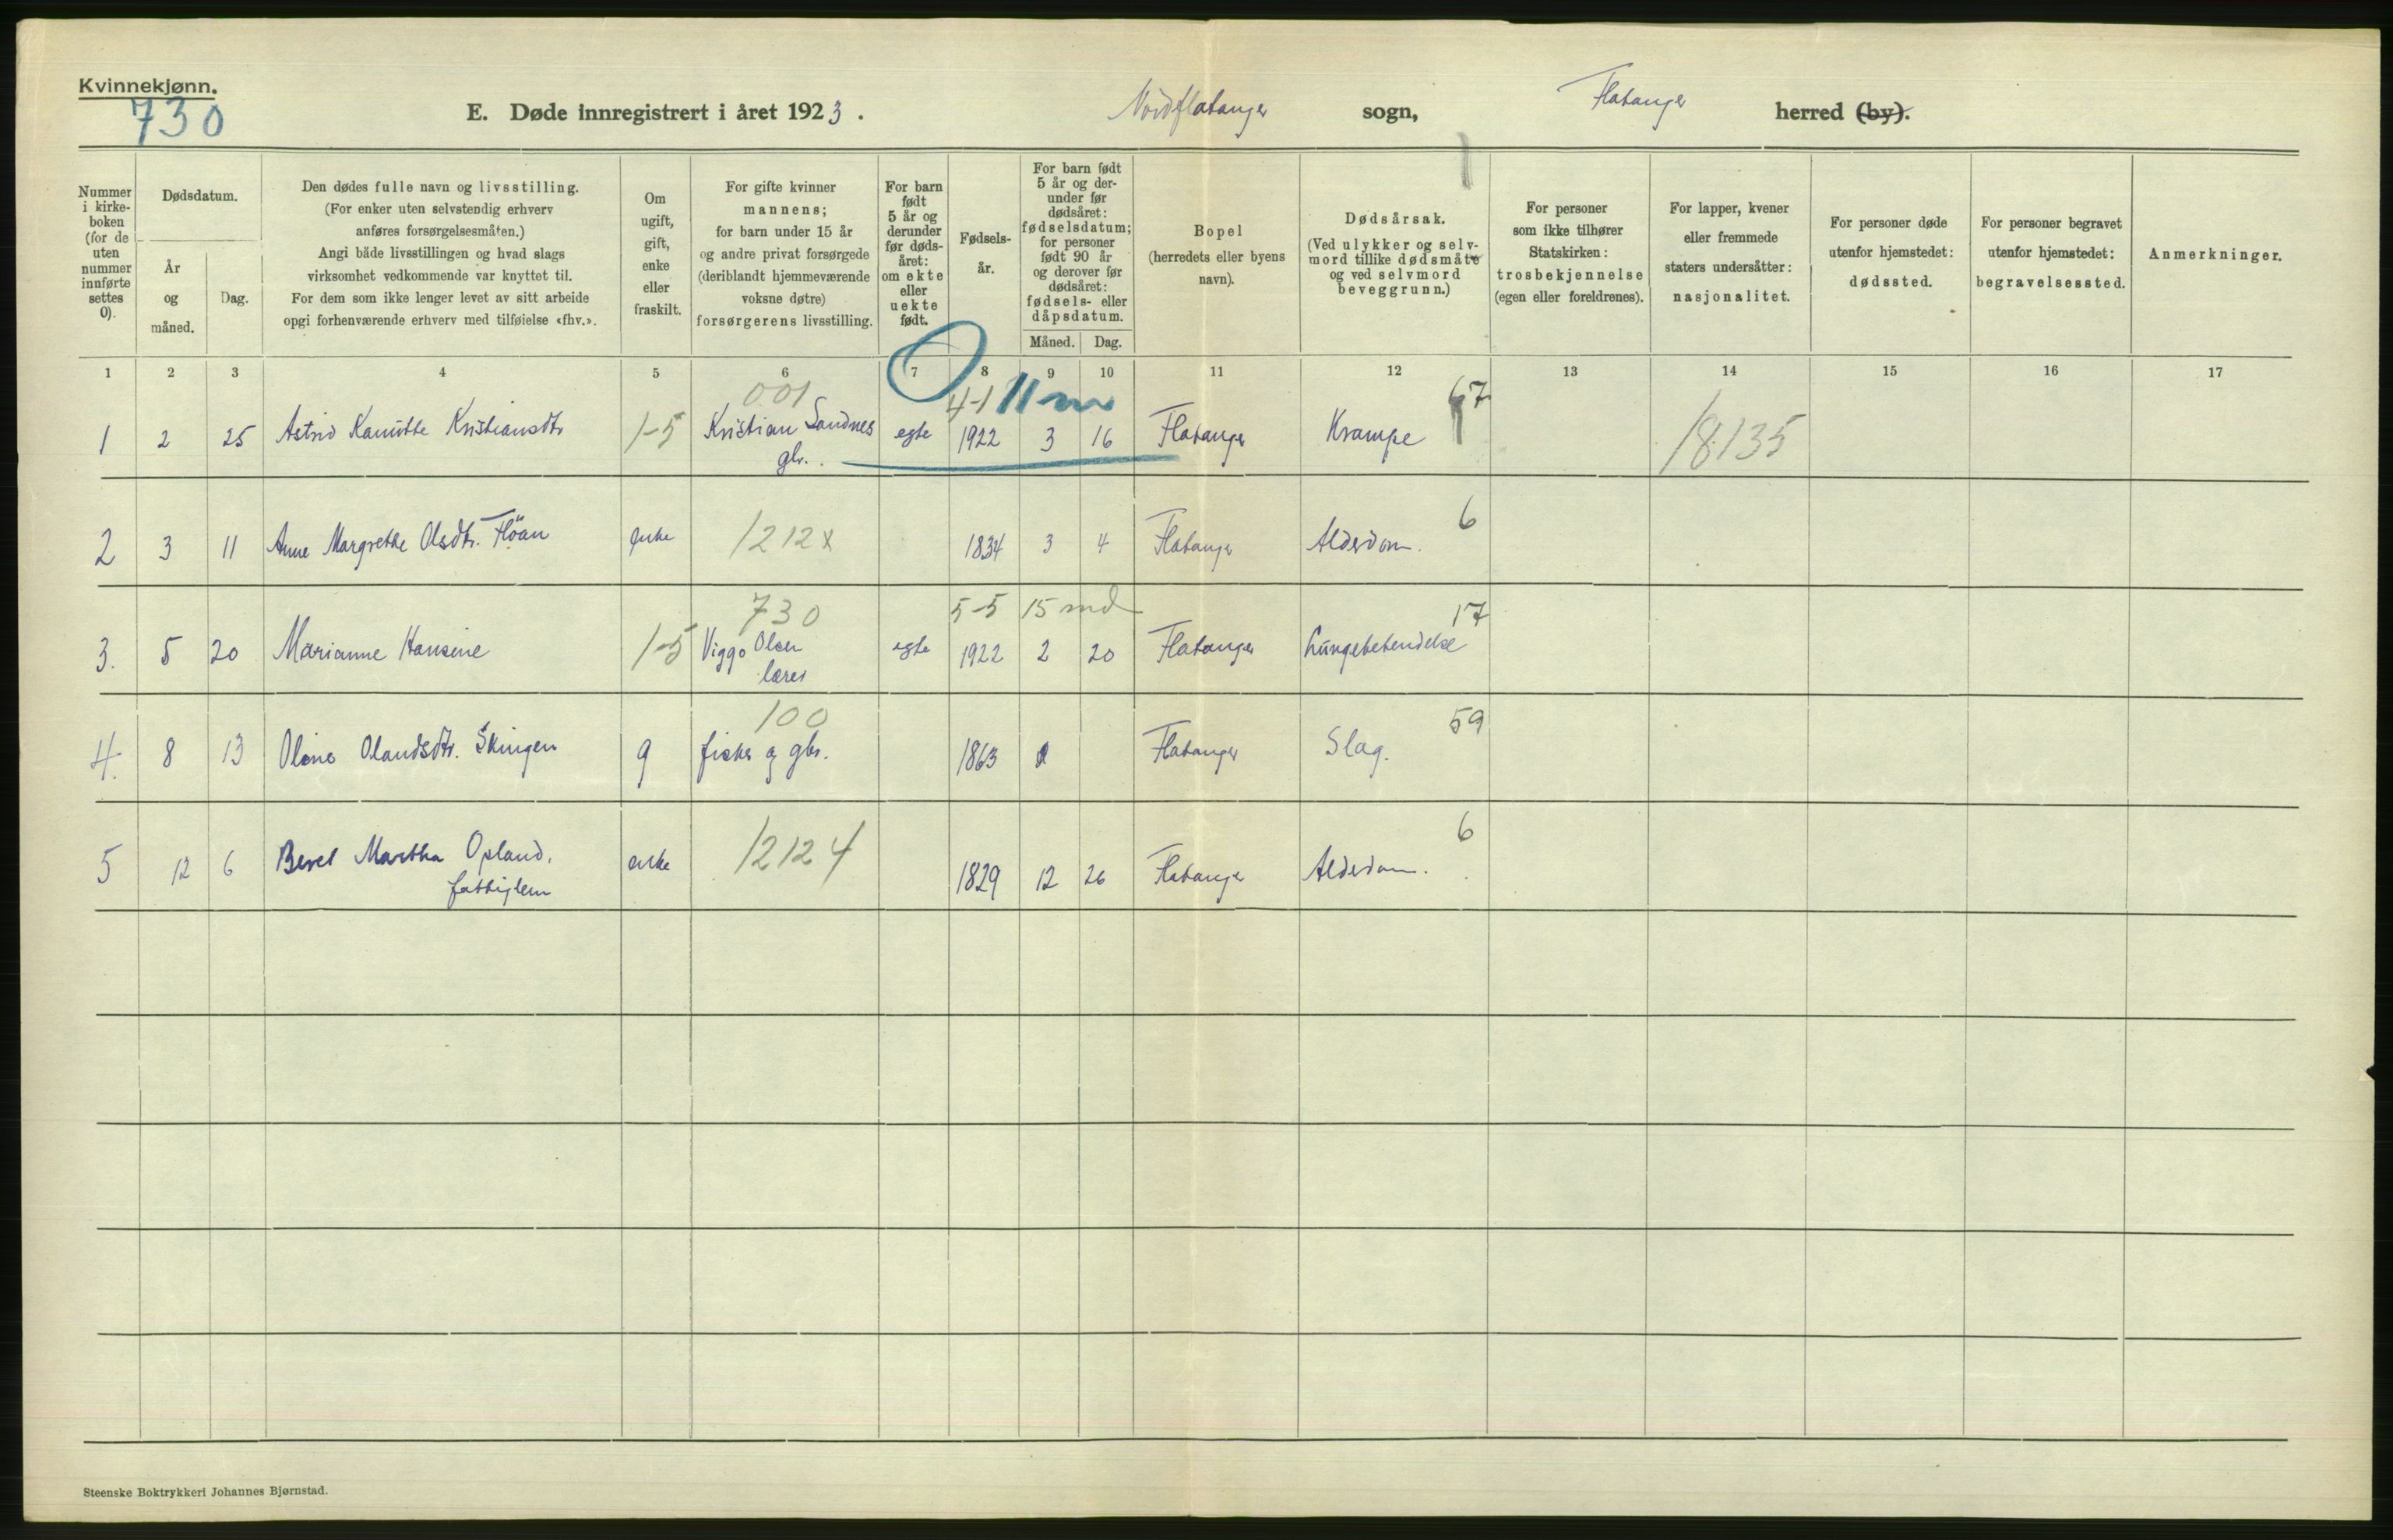 Kvinnekjønn.
730
E. Døde innregistrert i året 1923. Nordflatanger sogn, Flatanger herred (by).
Nummer i kirke-boken (for de uten nummer innførte settes 0).
Dødsdatum.
År og måned.
Dag.
Den dødes fulle navn og livsstilling.
(For enker uten selvstendig erhverv
anføres forsørgelsesmåten.)
Angi både livsstillingen og hvad slags
virksomhet vedkommende var knyttet til.
For dem som ikke lenger levet av sitt arbeide
opgi forhenværende erhverv med tilføielse «fhv.».
Om
ugift,
gift,
enke
eller
fraskilt.
For gifte kvinner
mannens;
for barn under 15 år
og andre privat forsørgede
(deriblandt hjemmeværende
voksne døtre)
forsørgerens livsstilling.
For barn
født
5 år og
derunder
før døds-
året:
om ekte
eller
uekte
født.
Fødsels-
år.
For barn født
5 år og der-
under før
dødsåret:
fødselsdatum;
for personer
født 90 år
og derover før
dødsåret:
fødsels- eller
dåpsdatum.
Måned. Dag.
Bopel
(herredets eller byens
navn).
Dødsårsak.
(Ved ulykker og selv-
mord tillike dødsmåte
og ved selvmord
beveggrunn.)
For personer
som ikke tilhører
Statskirken:
trosbekjennelse
(egen eller foreldrenes).
For lapper, kvener
eller fremmede
staters undersåtter:
nasjonalitet.
For personer døde
utenfor hjemstedet:
dødssted.
For personer begravet
utenfor hjemstedet:
begravelsessted.
Anmerkninger.
1 2 3 4 5 6 7 8 9 10 11 12 13 14 15 16 17
001 4-1 11 m 67
1 2 25 Astrid Kamitte Kristiansdtr 1-5 Kristian Sandnes egte 1922 3 16 Flatanger Krampe 18135
gbr.
6
2 3 11 Anne Margrethe Olsdtr. Flöan Enke 1212x 1834 3 4 Flatanger Alderdom.
730 5-5 15 md 17
3. 5 20 Marianne Hansine 1-5 Viggo Olsen egte 1922 2 20 Flatanger Lungebetendelse
lærer
100 59
4. 8 13 Oline Olandsdtr. Skingen g fisker og gbr. 1863 Flatanger Slag.
6
5 12 6 Beret Martha Opland, enke 12124 1829 12 26 Flatanger Alderdom.
fattiglem
Steenske Boktrykkeri Johannes Bjørnstad.